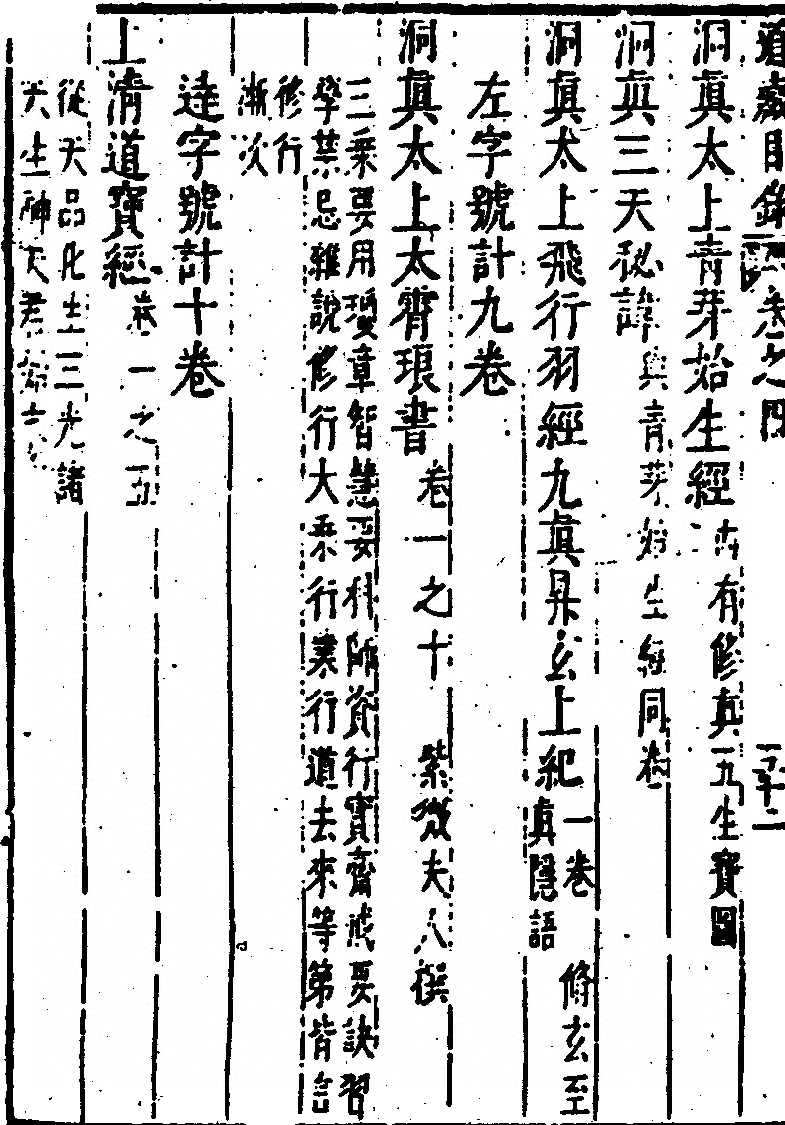 道藏目錄詳註卷之四 二十二
洞眞太上青芽始生經 內有修眞九生寶圖
洞眞三天秘諱 與青芽始生經同卷
洞眞太上飛行羽經九眞昇玄上紀 一卷 脩玄至
眞隱語
左字號計九卷
洞眞太上太霄琅書 卷一之十 紫微夫人撰
三乘要用瓊章智慧要科師資行實齋戒要訣習
學禁忌雜說修行大乘行業行道去來等第皆言
修行
漸次
達字號計十卷
上清道寶經 卷一之五
從天品化生三光諸
天生神天君